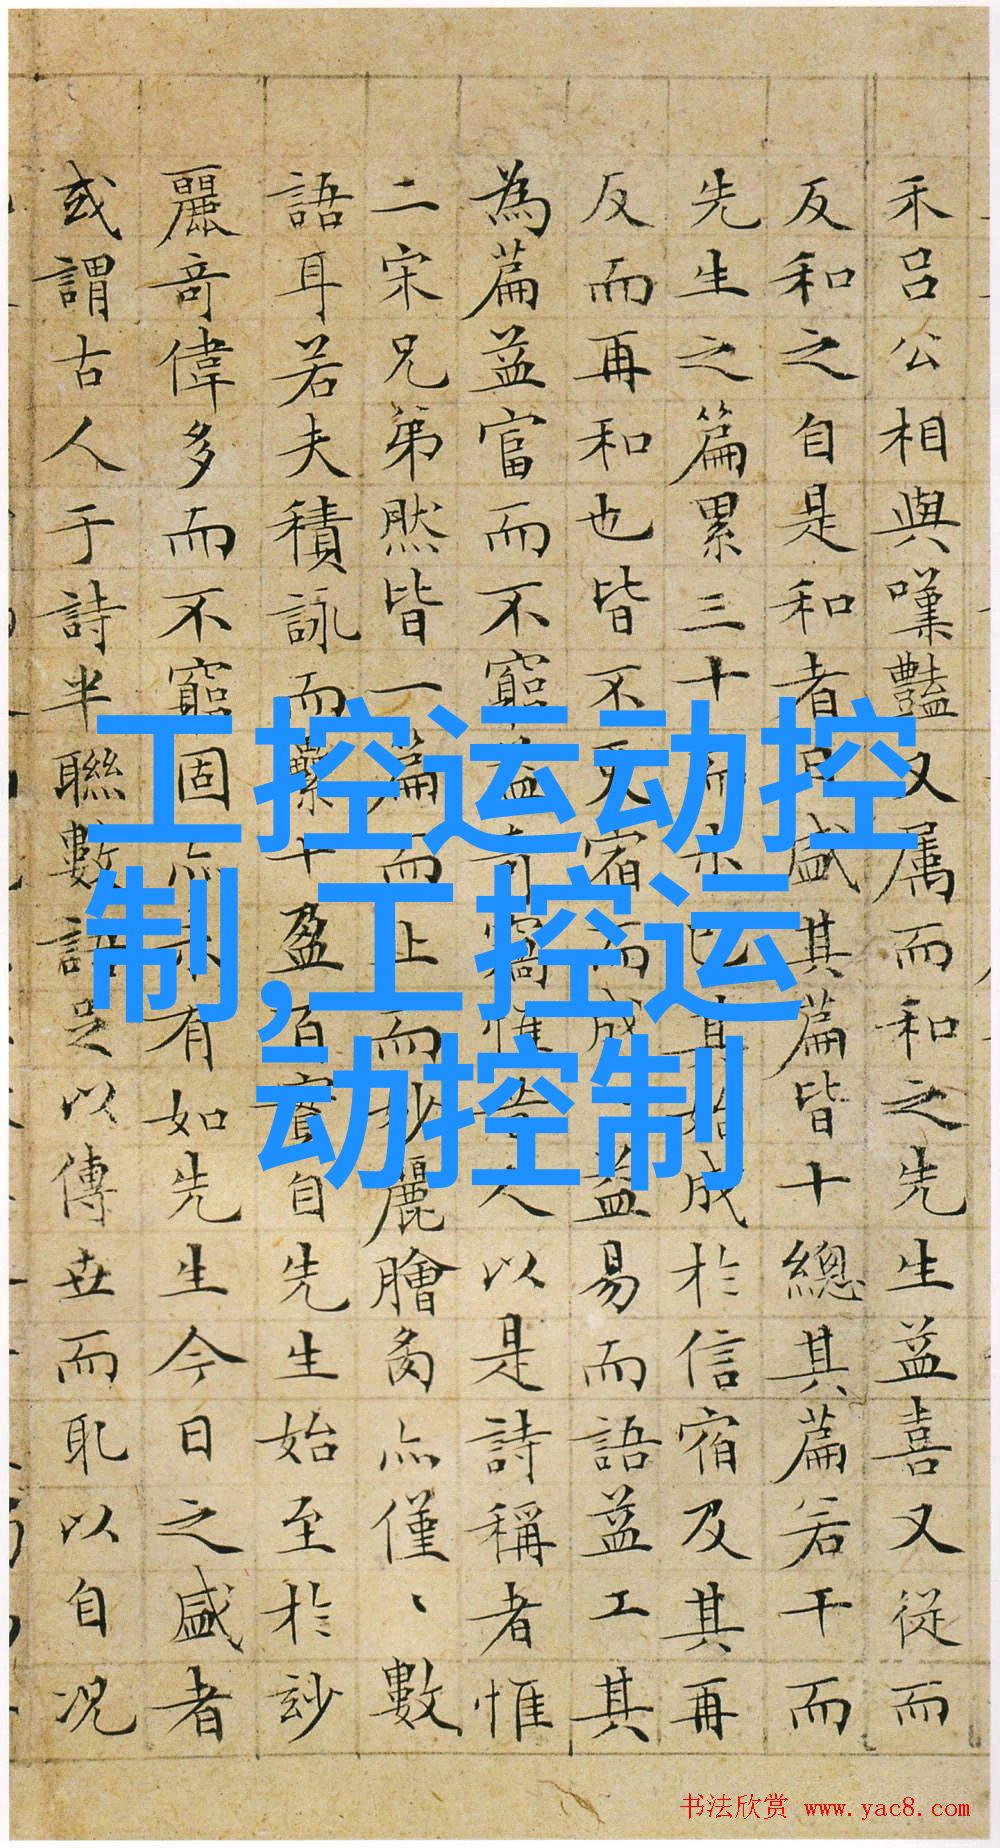 禾呂公相與嘆豔又属而和之先生益喜又從而
反和之自是和者日盛其篇皆十總其篇若干而
先生之篇累三十而未已其始成於信宿及其再
反而再和也皆不更宿而成益易而語益工其
為篇益富而不窮益奇窩惟昔人以是詩稱者惟
二宋兄弟然皆一篇而止而妙麗膾炙亦僅、數
語耳若夫積詠而纍十盈百自先生始至於玅
麗奇偉多而不窮固亦未有如先生今日之盛者
或謂古人于詩半聯數語足以傳世而耴以自况
工控运动控
制,工控运
动控制
书法欣赏 www.yac8.com